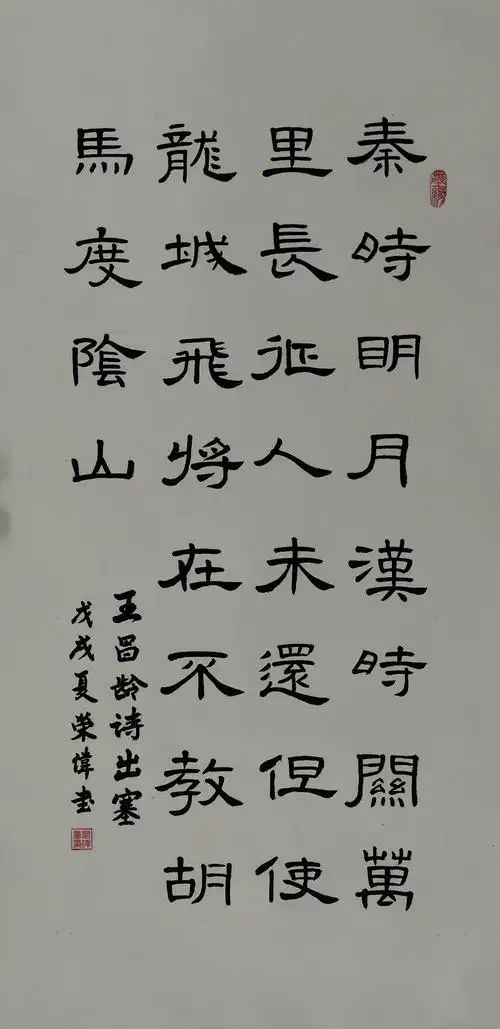 秦時明月漢時關萬
里長征人未還但使
龍城飛將在不教胡
馬度陰山
王昌龄诗出塞
戊戌夏荣偉书